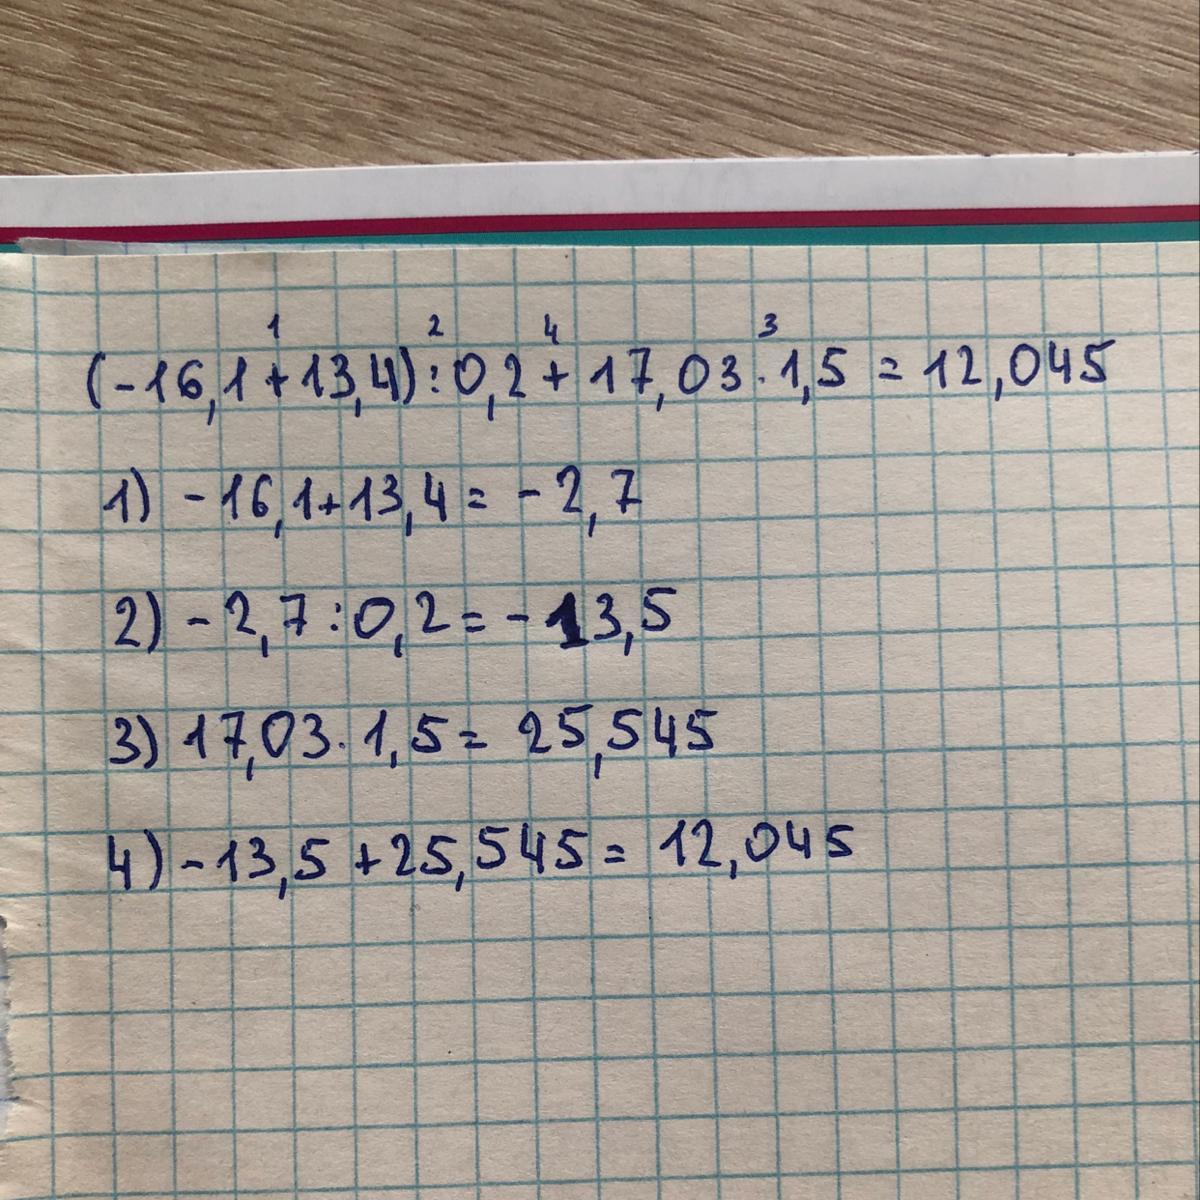 1 2 4 3
(-16,1+13,4):0,2+17,03·1,5=12,045
1) -16,1+13,4=-2,7
2) -2,7:0,2=-13,5
3) 17,03·1,5=25,545
4) -13,5+25,545=12,045